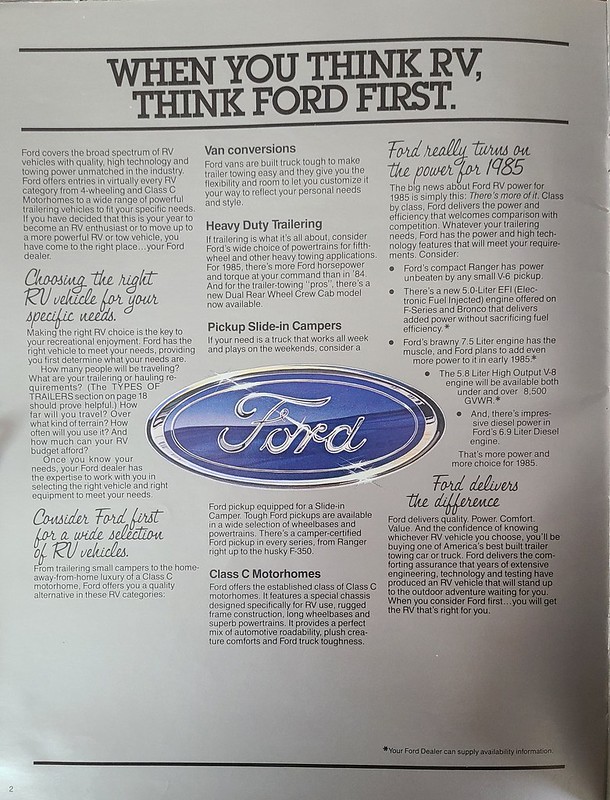 WHEN YOU THINK RV,
THINK FORD FIRST.
Ford covers the broad spectrum of RV
vehicles with quality, high technology and
towing power unmatched in the industry.
Ford offers entries in virtually every RV
category from 4-wheeling and Class C
Motorhomes to a wide range of powerful
trailering vehicles to fit your specific needs.
If you have decided that this is your year to
become an RV enthusiast or to move up to
a more powerful RV or tow vehicle, you
have come to the right place...your Ford
dealer.
Choosing the right
RV vehicle for your
specific needs.
Making the right RV choice is the key to
your recreational enjoyment. Ford has the
right vehicle to meet your needs, providing
you first determine what your needs are.
How many people will be traveling?
What are your trailering or hauling re-
quirements? (The TYPES OF
TRAILERS section on page 18
should prove helpful.) How
far will you travel? Over
what kind of terrain? How
often will you use it? And
how much can your RV
budget afford?
Once you know your
needs, your Ford dealer has
the expertise to work with you in
selecting the right vehicle and right
equipment to meet your needs.
Consider Ford first
for a wide selection
of RV vehicles.
From trailering small campers to the home-
away-from-home luxury of a Class C
motorhome, Ford offers you a quality
alternative in these RV categories:
Van conversions
Ford vans are built truck tough to make
trailer towing easy and they give you the
flexibility and room to let you customize it
your way to reflect your personal needs
and style.
Heavy Duty Trailering
If trailering is what it's all about, consider
Ford's wide choice of powertrains for fifth-
wheel and other heavy towing applications.
For 1985, there's more Ford horsepower
and torque at your command than in '84.
And for the trailer-towing "pros", there's a
new Dual Rear Wheel Crew Cab model
now available.
Pickup Slide-in Campers
If your need is a truck that works all week
and plays on the weekends, consider a
Ford
Ford pickup equipped for a Slide-in
Camper. Tough Ford pickups are available
in a wide selection of wheelbases and
powertrains. There's a camper-certified
Ford pickup in every series, from Ranger
right up to the husky F-350.
Class C Motorhomes
Ford offers the established class of Class C
motorhomes. It features a special chassis
designed specifically for RV use, rugged
frame construction, long wheelbases and
superb powertrains. It provides a perfect
mix of automotive roadability, plush crea-
ture comforts and Ford truck toughness.
Ford really turns on
the power for 1985
The big news about Ford RV power for
1985 is simply this: There's more of it. Class
by class, Ford delivers the power and
efficiency that welcomes comparison with
competition. Whatever your trailering
needs, Ford has the power and high tech-
nology features that will meet your require-
ments. Consider:
• Ford's compact Ranger has power
unbeaten by any small V-6 pickup.
• There's a new 5.0-Liter EFI (Elec-
tronic Fuel Injected) engine offered on
F-Series and Bronco that delivers
added power without sacrificing fuel
efficiency.*
• Ford's brawny 7.5 Liter engine has the
muscle, and Ford plans to add even
more power to it in early 1985.*
• The 5.8 Liter High Output V-8
engine will be available both
under and over 8,500
GVWR.*
• And, there's impres-
sive diesel power in
Ford's 6.9 Liter Diesel
engine.
That's more power and
more choice for 1985.
Ford delivers
the difference
Ford delivers quality. Power. Comfort.
Value. And the confidence of knowing
whichever RV vehicle you choose, you'll be
buying one of America's best built trailer
towing car or truck. Ford delivers the com-
forting assurance that years of extensive
engineering, technology and testing have
produced an RV vehicle that will stand up
to the outdoor adventure waiting for you.
When you consider Ford first...you will get
the RV that's right for you.
*Your Ford Dealer can supply availability information.
2